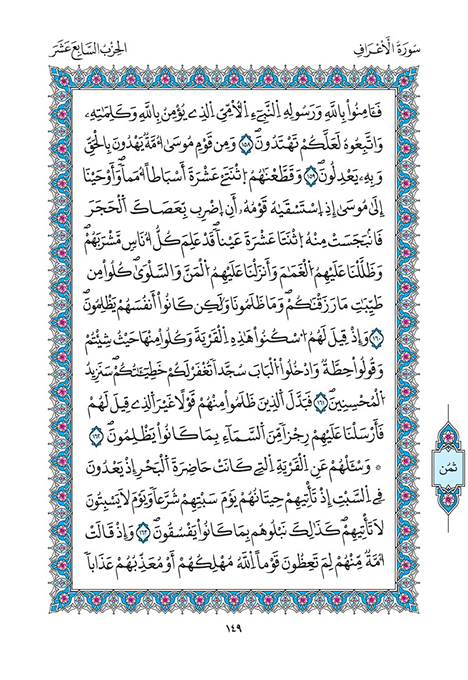 سُورَةُ الْأَعْرَافِ
الحِزْبُ السَّابِعَ عَشَرَ
فَـَٔامِنُواْ بِاللَّهِ وَرَسُولِهِ النَّبِيٓءِ الْأُمِّيِّ الذِے يُؤْمِنُ بِاللَّهِ وَكَلِمَٰتِهِۦ
وَاتَّبِعُوهُ لَعَلَّكُمْ تَهْتَدُونَۖ ١٥٨ وَمِن قَوْمِ مُوسَىٰٓ أُمَّةٌ يَهْدُونَ بِالْحَقِّ
وَبِهِۦ يَعْدِلُونَۖ ١٥٩ وَقَطَّعْنَٰهُمُ اُثْنَتَےْ عَشْرَةَ أَسْبَاطاً أُمَماًۖ وَأَوْحَيْنَآ
إِلَىٰ مُوسَىٰٓ إِذِ اِسْتَسْقَىٰهُ قَوْمُهُۥٓ أَنِ اِضْرِب بِّعَصَاكَ اَلْحَجَرَ
فَانۢبَجَسَتْ مِنْهُ اُثْنَتَا عَشْرَةَ عَيْناًۖ قَدْ عَلِمَ كُلُّ أُنَاسٍ مَّشْرَبَهُمْۖ
وَظَلَّلْنَا عَلَيْهِمُ الْغَمَٰمَ وَأَنزَلْنَا عَلَيْهِمُ الْمَنَّ وَالسَّلْوَىٰۖ كُلُواْ مِن
طَيِّبَٰتِ مَا رَزَقْنَٰكُمْۖ وَمَا ظَلَمُونَا وَلَٰكِن كَانُوٓاْ أَنفُسَهُمْ يَظْلِمُونَۖ
١٦٠ وَإِذْ قِيلَ لَهُمُ اُسْكُنُواْ هَٰذِهِ الْقَرْيَةَ وَكُلُواْ مِنْهَا حَيْثُ شِئْتُمْ
وَقُولُواْ حِطَّةٌ وَادْخُلُواْ الْبَابَ سُجَّداً تُغْفَرْ لَكُمْ خَطِيٓـَٰٔتُكُمْۖ سَنَزِيدُ
الْمُحْسِنِينَۖ ١٦١ فَبَدَّلَ الذِينَ ظَلَمُواْ مِنْهُمْ قَوْلًا غَيْرَ الذِے قِيلَ لَهُمْ
فَأَرْسَلْنَا عَلَيْهِمْ رِجْزاً مِّنَ السَّمَآءِ بِمَا كَانُواْ يَظْلِمُونَۖ ١٦٢
۞ وَسْـَٔلْهُمْ عَنِ الْقَرْيَةِ الَّتِے كَانَتْ حَاضِرَةَ الْبَحْرِ إِذْ يَعْدُونَ
فِے السَّبْتِ إِذْ تَأْتِيهِمْ حِيتَانُهُمْ يَوْمَ سَبْتِهِمْ شُرَّعاً وَيَوْمَ لَا يَسْبِتُونَ
لَا تَأْتِيهِمْۖ كَذَٰلِكَ نَبْلُوهُم بِمَا كَانُواْ يَفْسُقُونَۖ ١٦٣ وَإِذْ قَالَتُ
اُمَّةٌ مِّنْهُمْ لِمَ تَعِظُونَ قَوْماً اِللَّهُ مُهْلِكُهُمْ أَوْ مُعَذِّبُهُمْ عَذَاباً
ثُمُن
١٤٩